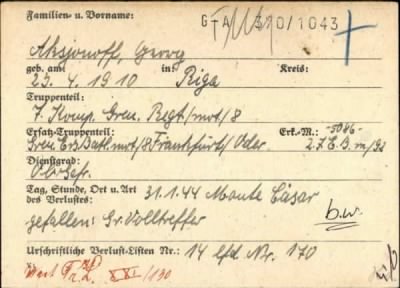 Familien- u. Vorname: G-A 370/1043
Aksjonoff, Georg
geb. am: in: Kreis:
25. 4. 1910 Riga
Truppenteil:
7. Komp. Gren. Regt./mot/8
Ersatz-Truppenteil: Erk.-M.: -5086-
Gren. Ers. Batl. mot/8 Frankfurt/Oder
Dienstgrad:
Obgefr.
Tag, Stunde, Ort u. Art
des Verlustes: 31.1.44 Monte Cäsar
gefallen: Gr. Volltreffer b.w.
Urschriftliche Verlust-Listen Nr.: 14 lfd. Nr. 170
XXI/190